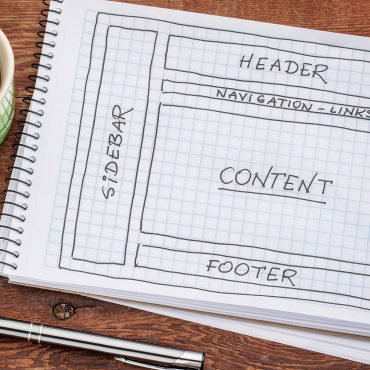 HEADER
NAVIGATION - LINKS
SIDEBAR
CONTENT
FOOTER